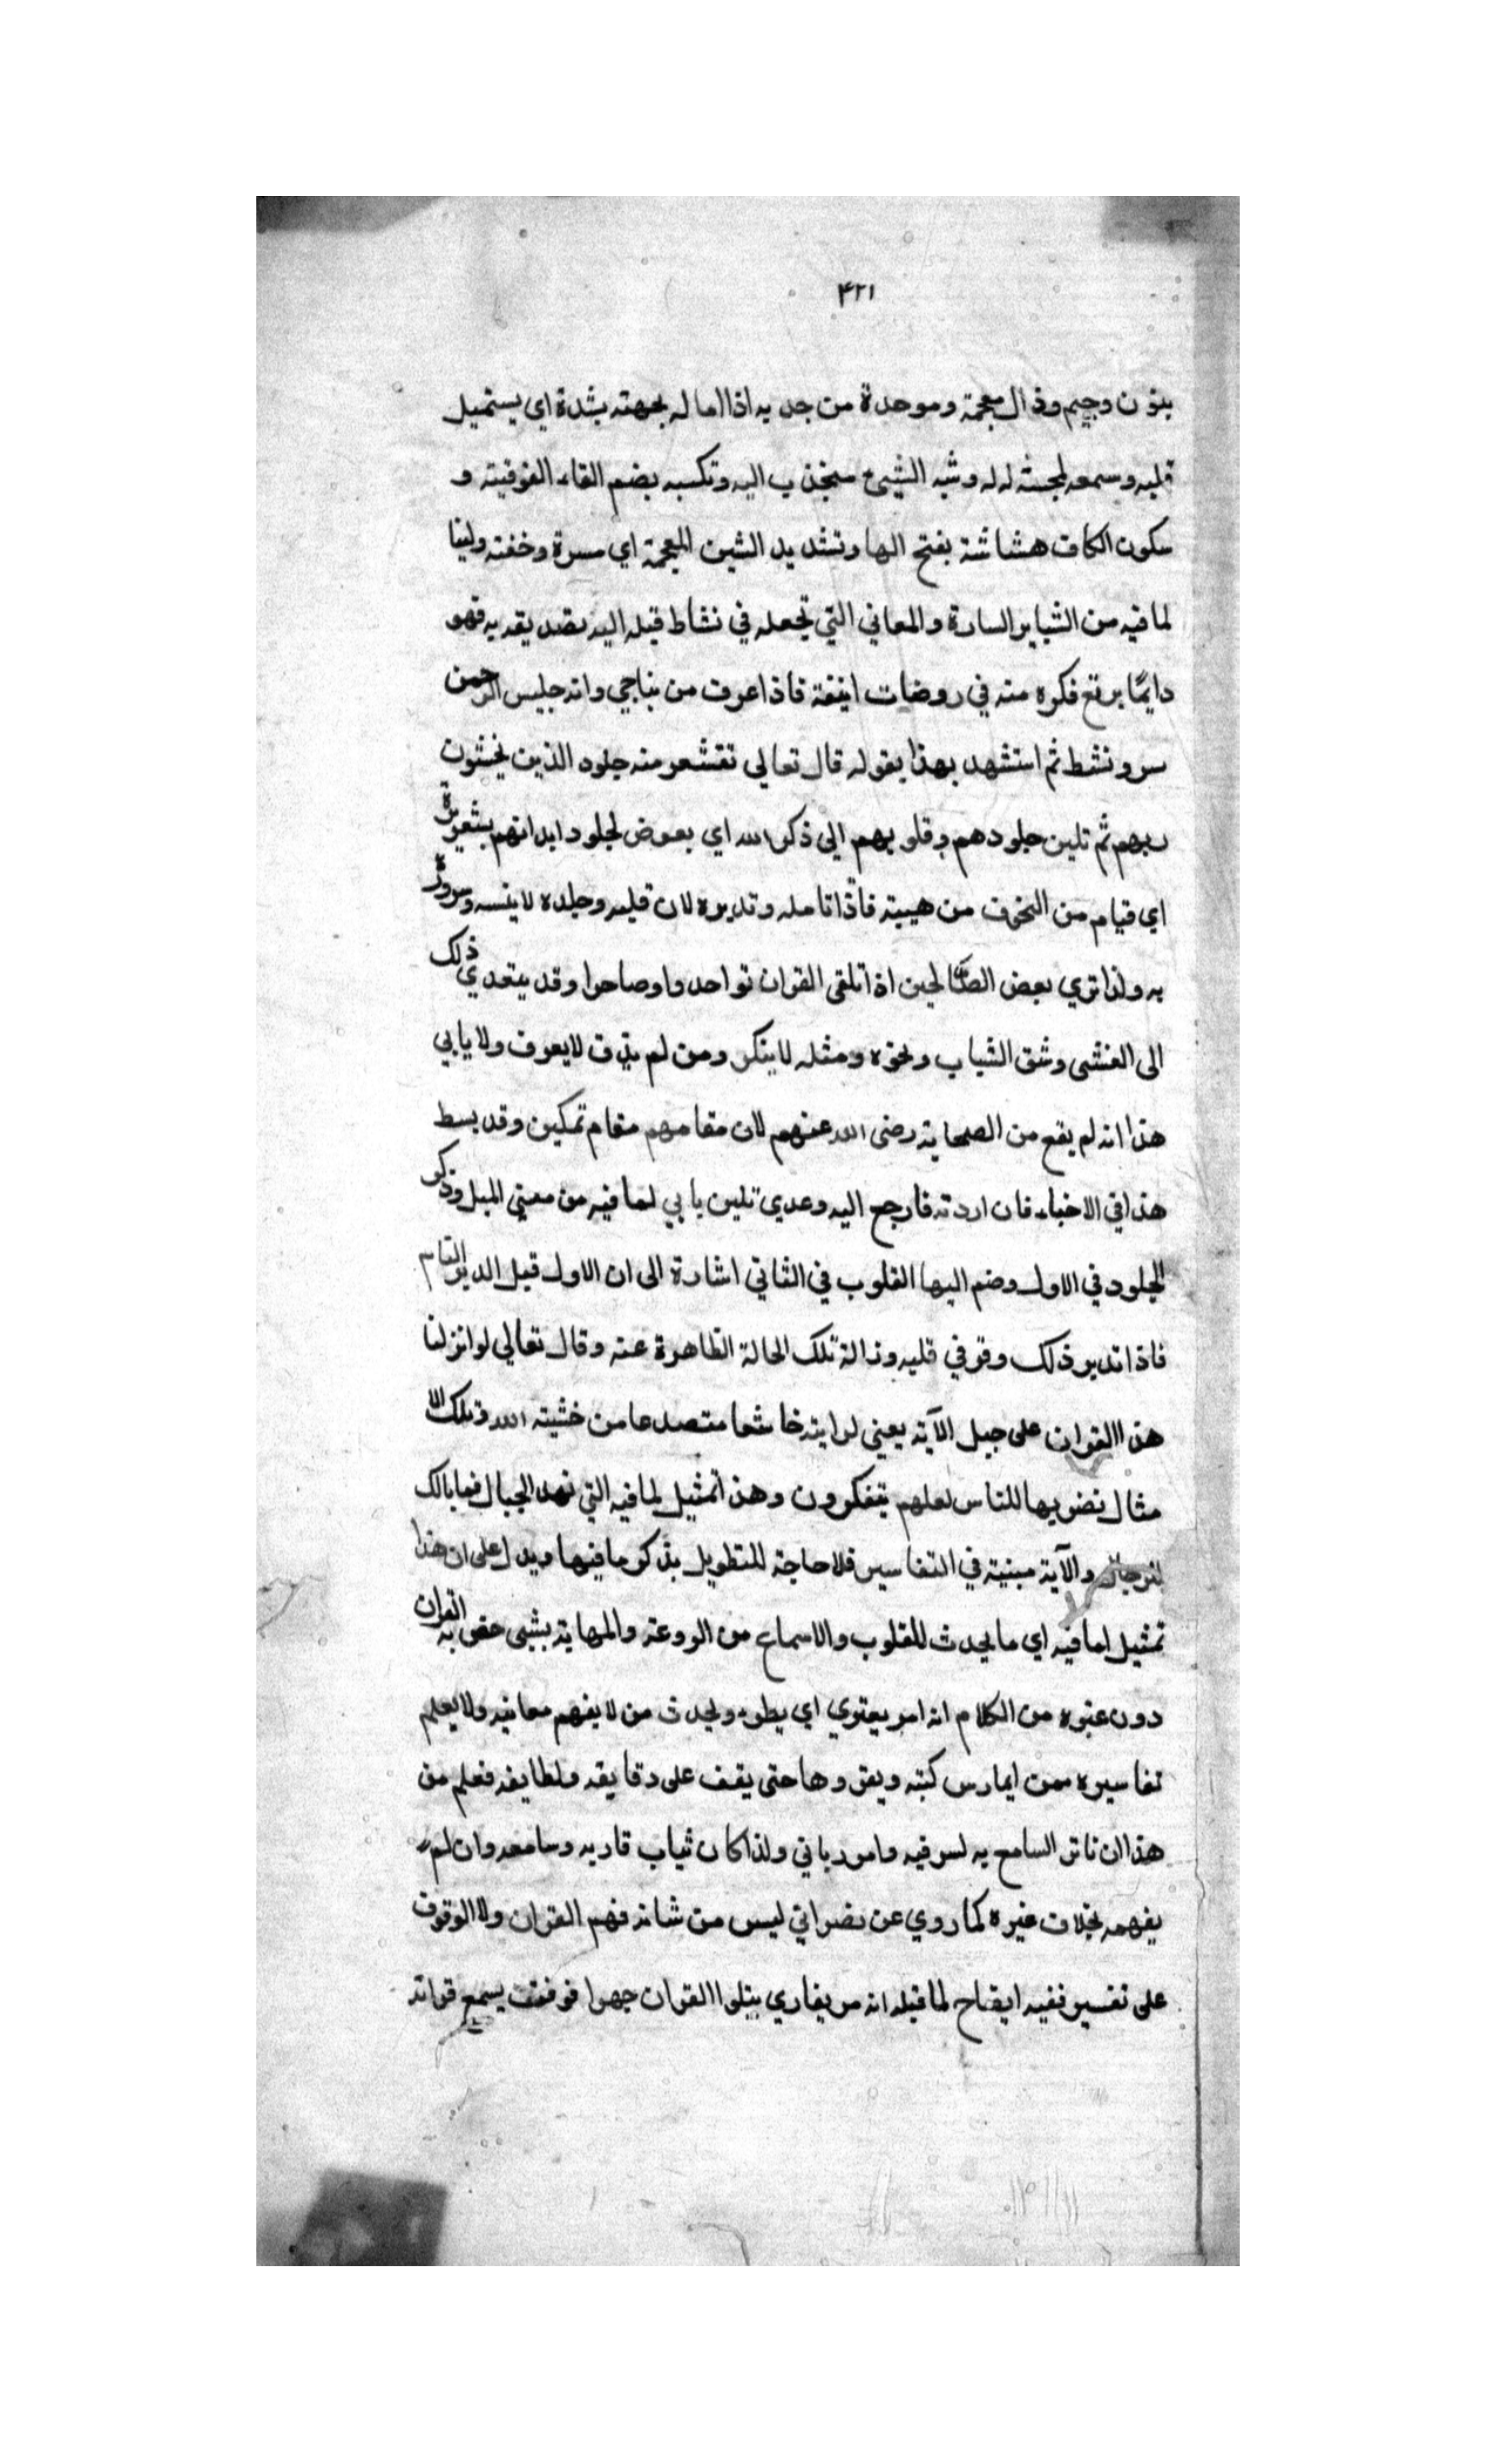 ۴۲۱
بنون وجيم وذال معجمة وموحدة من جد به اذا اماله بجهته بشدة اي يستميل
قلبه وسمعه لمحبته له وشبه الشيئ منجذب اليه وتكسبه بضم التاء الفوقيته و
سكون الكاف هشاشة بفتح الها وتشديد الشين المعجمة اي مسرة وخفته ولينا
لما فيه من الشباير السارة والمعاني التي تجعله في نشاط قبله اليه بصديقه به فهو
دايمًا يرتع فكره منه في روضات انيفة فاذا عرف من يناجي وانه جليس الرحمن
سر ونشط ثم استشهد بهذا بقوله قال تعالي تقشعر منه جلود الذين يخشون
ربهم ثم تلين جلودهم وقلوبهم الي ذكر الله اي بعوض لجلود ابدانهم بشعريرة
اي قيام من الخوف من هيبته فاذا تامله وتدبره لان قلبه وجلده لا ينسه وسروره
به ولذا تري بعض الصالحين اذا تلقى القران تواجدوا وصاحوا وقد يتعدي ذلك
الى الغشى وشق الثياب ونحوه ومثله لا ينكر ومن لم يذق لا يعرف ولا يابي
هذا انه لم يقع من الصحابة رضى الله عنهم لان مقامهم مقام تمكين وقد بسط
هذا في الاحياء فان اردته فارجع اليه وعدي تلين بابي لما فيه من معني الميل وذكر
الجلود في الاول وضم اليها القلوب في الثاني اشارة الى ان الاول قبل الدبر التام
فاذا تدبر ذلك وقر في قلبه وزالة تلك الحالة الظاهرة عنه وقال تعالي لو انزلنا
هذا القران على جبل الآية يعني لرايته خاشعا متصدعا من خشيته الله وتلك الا
مثال نضربها للناس لعلهم يتفكرون وهذا تمثيل لما فيه التي تهد الجبال فما بالك
والآية مبنية في التفاسير فلا حاجة للتطويل بذكر ما فيها ويدل على ان هذا
تمثيل لما فيه اي ما يحدث للقلوب والاسماع من الروعة والمهابة بشئ خص به القران
دون غيره من الكلام انه امر يعتري اي يطرء ويحدث من لا يفهم معانيه ولا يعلم
تفاسيره ممن ايمارس كتبه ويقروها حتى يقف على دقايقه ولطايفه فعلم من
هذا ان تاثر السامع به لسر فيه وامور باني ولذا كان ثياب قاريه وسامعه وان لم
يفهمه بخلاف غيره كما روي عن نصراني ليس من شانه فهم القران ولا الوقوف
على تفسير ففيه ايضاح لما قبله انه مر بقاري يتلوا القران جهرا فوقف يسمع قراته